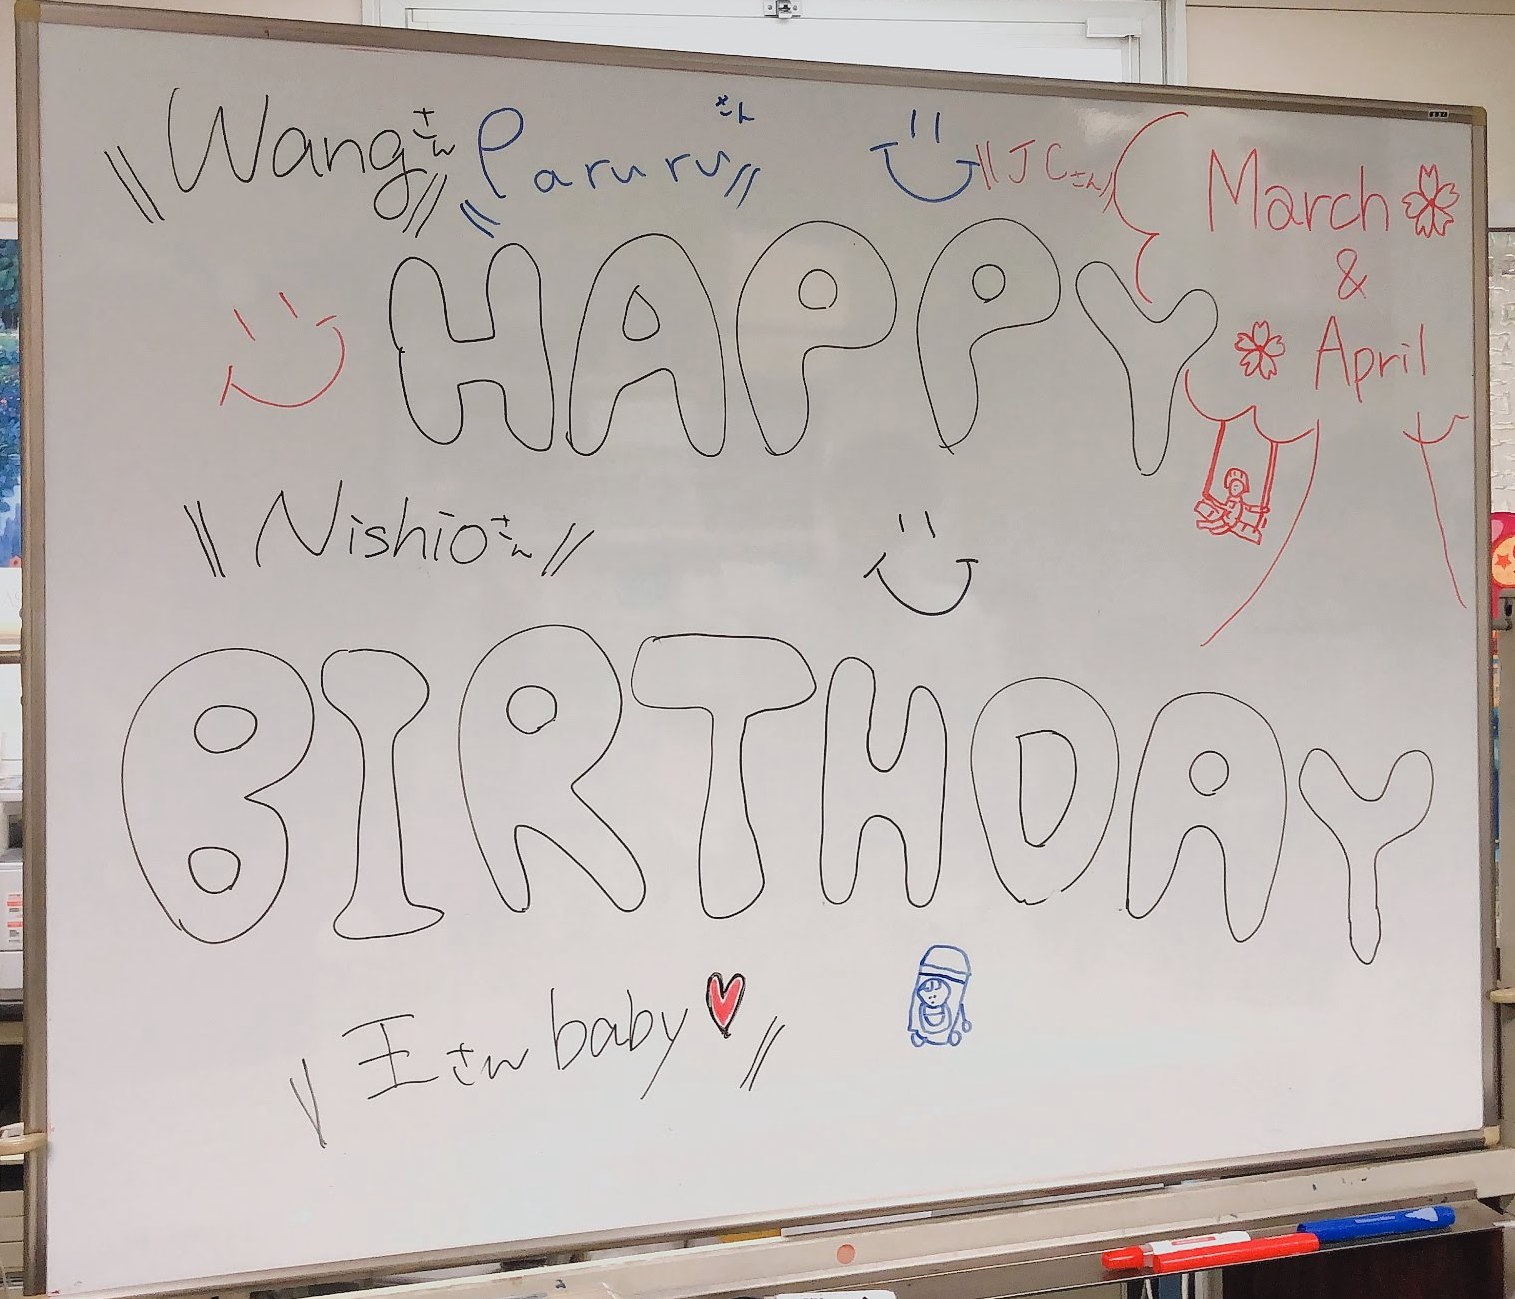 Wangさん Paruruさん JCさん
March
&
April
HAPPY
Nishioさん
BIRTHDAY
王さん baby